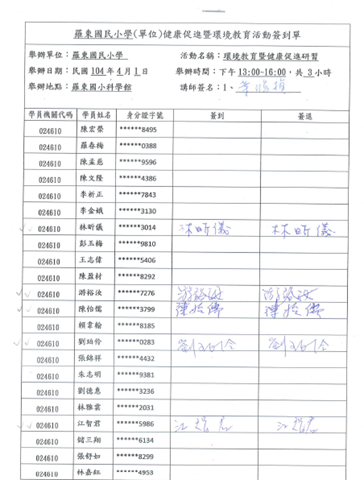 羅東國民小學(單位)健康促進暨環境教育活動簽到單
舉辦單位：羅東國民小學 活動名稱：環境教育暨健康促進研習
舉辦日期：民國 104 年 4 月 1 日 舉辦時間：下午 13:00-16:00，共 3 小時
舉辦地點：羅東國小科學館 講師簽名：1、
學員機關代碼 學員姓名 身分證字號 簽到 簽退
024610 陳宏榮 ******8495
024610 羅春梅 ******0388
024610 陳孟慈 ******9596
024610 陳文隆 ******4386
024610 李祈正 ******7843
024610 李金娥 ******3130
024610 林昕儀 ******3014 林昕儀 林昕儀
024610 彭玉梅 ******9810
024610 王志偉 ******5406
024610 陳盈材 ******8292
024610 游裕汝 ******7276 游裕汝 游裕汝
024610 陳怡儒 ******3799 陳怡儒 陳怡儒
024610 賴韋翰 ******8185
024610 劉珆伶 ******0283
024610 張錦祥 ******4432
024610 朱志明 ******9381
024610 劉德惠 ******3236
024610 林雅雲 ******2031
024610 江智君 ******5986 江智君 江智君
024610 儲三翔 ******6134
024610 張舒如 ******8299
024610 林嘉鈺 ******4953